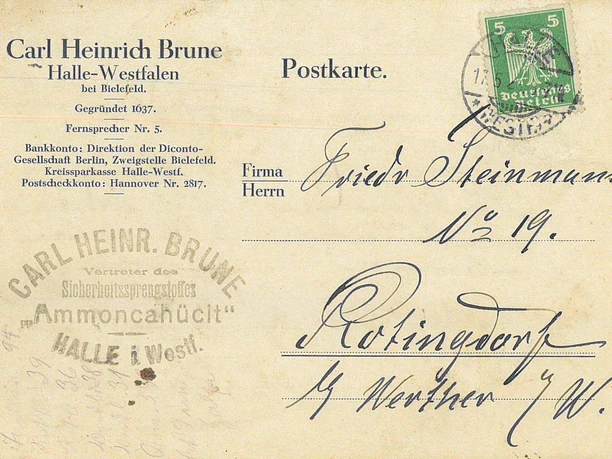 Carl Heinrich Brune
Halle-Westfalen
bei Bielefeld.
Gegründet 1637.
Fernsprecher Nr. 5.
Bankkonto: Direktion der Diconto-
Gesellschaft Berlin, Zweigstelle Bielefeld.
Kreissparkasse Halle-Westf.
Postscheckkonto: Hannover Nr. 2817.
Postkarte.
5 5
Deutsches
Reich
HALLE
WESTF
Firma
Herrn
Friedr Steinmann
No 19.
Rotingdorf
b/ Werther i/W.
CARL HEINR. BRUNE
Vertreter des
Sicherheitssprengstoffes
„Ammoncahücit“
HALLE i. Westf.